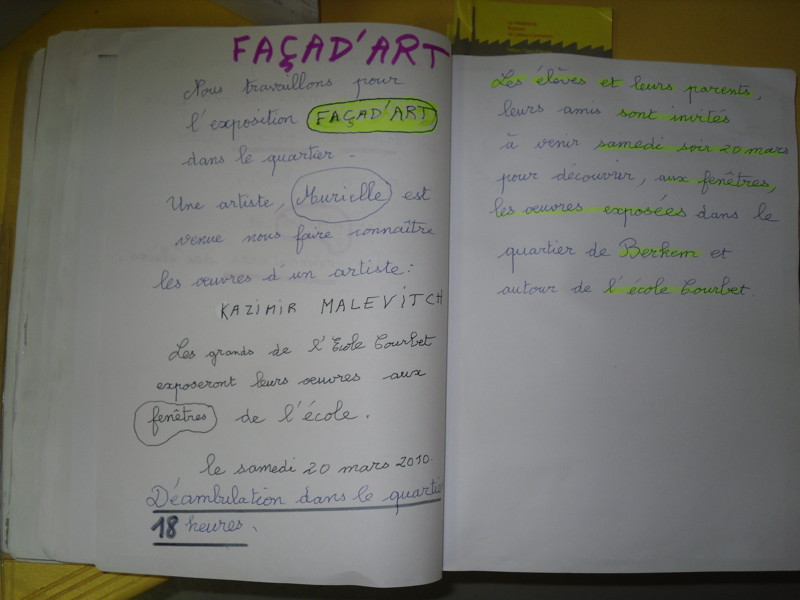 FAÇAD'ART
Nous travaillons pour
l'exposition FAÇAD'ART
dans le quartier.
Une artiste, Murielle est
venue nous faire connaître
les œuvres d'un artiste:
KAZIMIR MALEVITCH
Les grands de l'Ecole Courbet
exposeront leurs œuvres aux
fenêtres de l'école.
le samedi 20 mars 2010.
Déambulation dans le quartie
18 heures.
Les élèves et leurs parents,
leurs amis sont invités
à venir samedi soir 20 mars
pour découvrir, aux fenêtres,
les œuvres exposées dans le
quartier de Berkem et
autour de l'école Courbet.